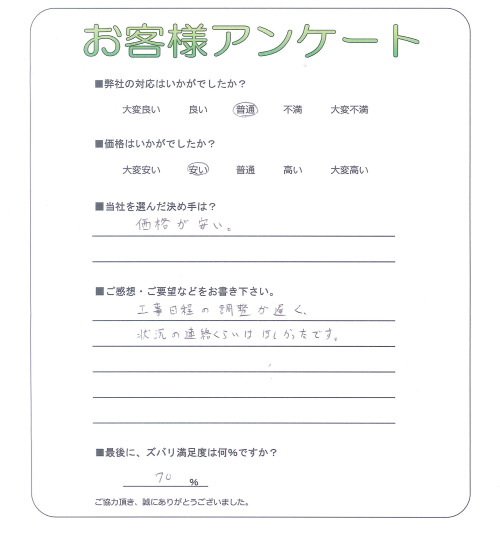 お客様アンケート
■弊社の対応はいかがでしたか？
大変良い 良い 普通 不満 大変不満
■価格はいかがでしたか？
大変安い 安い 普通 高い 大変高い
■当社を選んだ決め手は？
価格が安い。
■ご感想・ご要望などをお書き下さい。
工事日程の調整が遅く、
状況の連絡くらいはほしかったです。
■最後に、ズバリ満足度は何%ですか？
70 %
ご協力頂き、誠にありがとうございました。